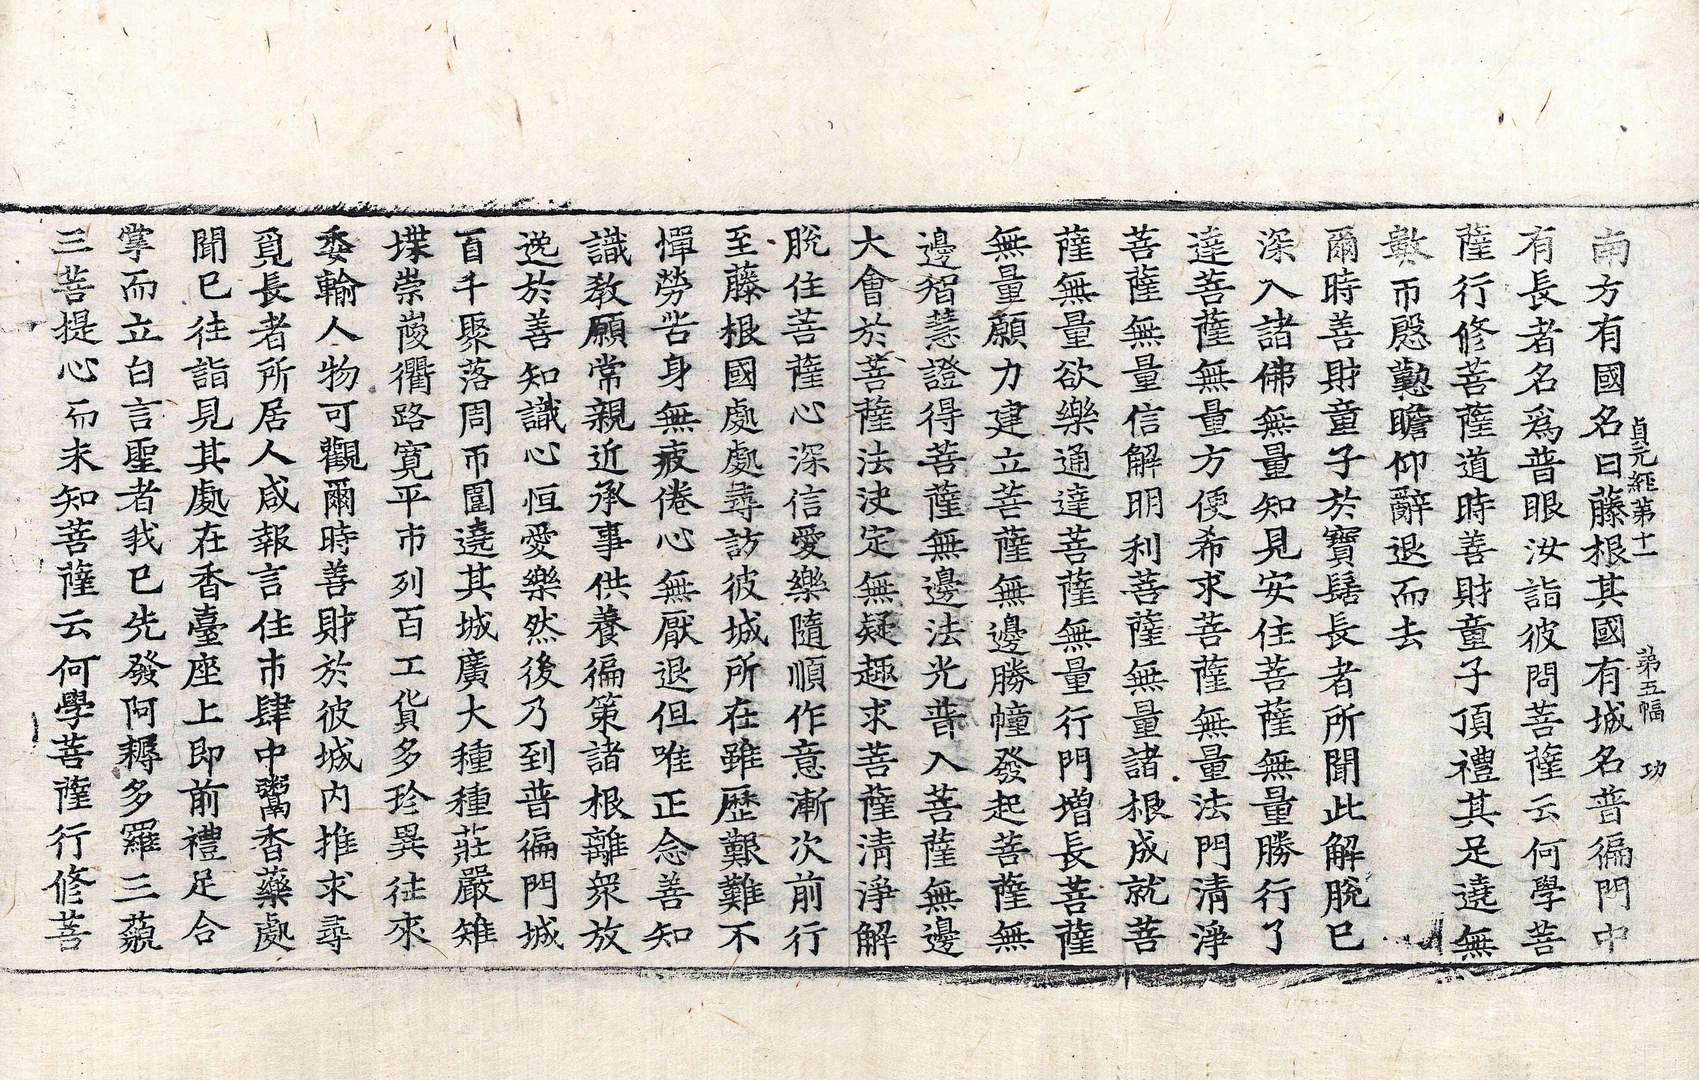 南方有國名曰藤根其國有城名普徧門中
貞元經第十一　第五幅　功
有長者名爲普眼汝詣彼問菩薩云何學菩
薩行修菩薩道時善財童子頂禮其足遶無
數帀慇懃瞻仰辭退而去
爾時善財童子於寶髻長者所聞此解脫已
深入諸佛無量知見安住菩薩無量勝行了
達菩薩無量方便希求菩薩無量法門清淨
菩薩無量信解明利菩薩無量諸根成就菩
薩無量欲樂通達菩薩無量行門增長菩薩
無量願力建立菩薩無邊勝幢發起菩薩無
邊智慧證得菩薩無邊法光普入菩薩無邊
大會於菩薩法決定無疑趣求菩薩清淨解
脫住菩薩心深信愛樂隨順作意漸次前行
至藤根國處處尋訪彼城所在雖歷艱難不
憚勞苦身無疲倦心無厭退但唯正念善知
識教願常親近承事供養徧策諸根離衆放
逸於善知識心恒愛樂然後乃到普徧門城
百千聚落周帀圍遶其城廣大種種莊嚴雉
堞崇峻衢路寬平市列百工貨多珍異往來
委輸人物可觀爾時善財於彼城內推求尋
覓長者所居人咸報言住市肆中鬻香藥處
聞已往詣見其處在香臺座上即前禮足合
掌而立白言聖者我已先發阿耨多羅三藐
三菩提心而未知菩薩云何學菩薩行修菩